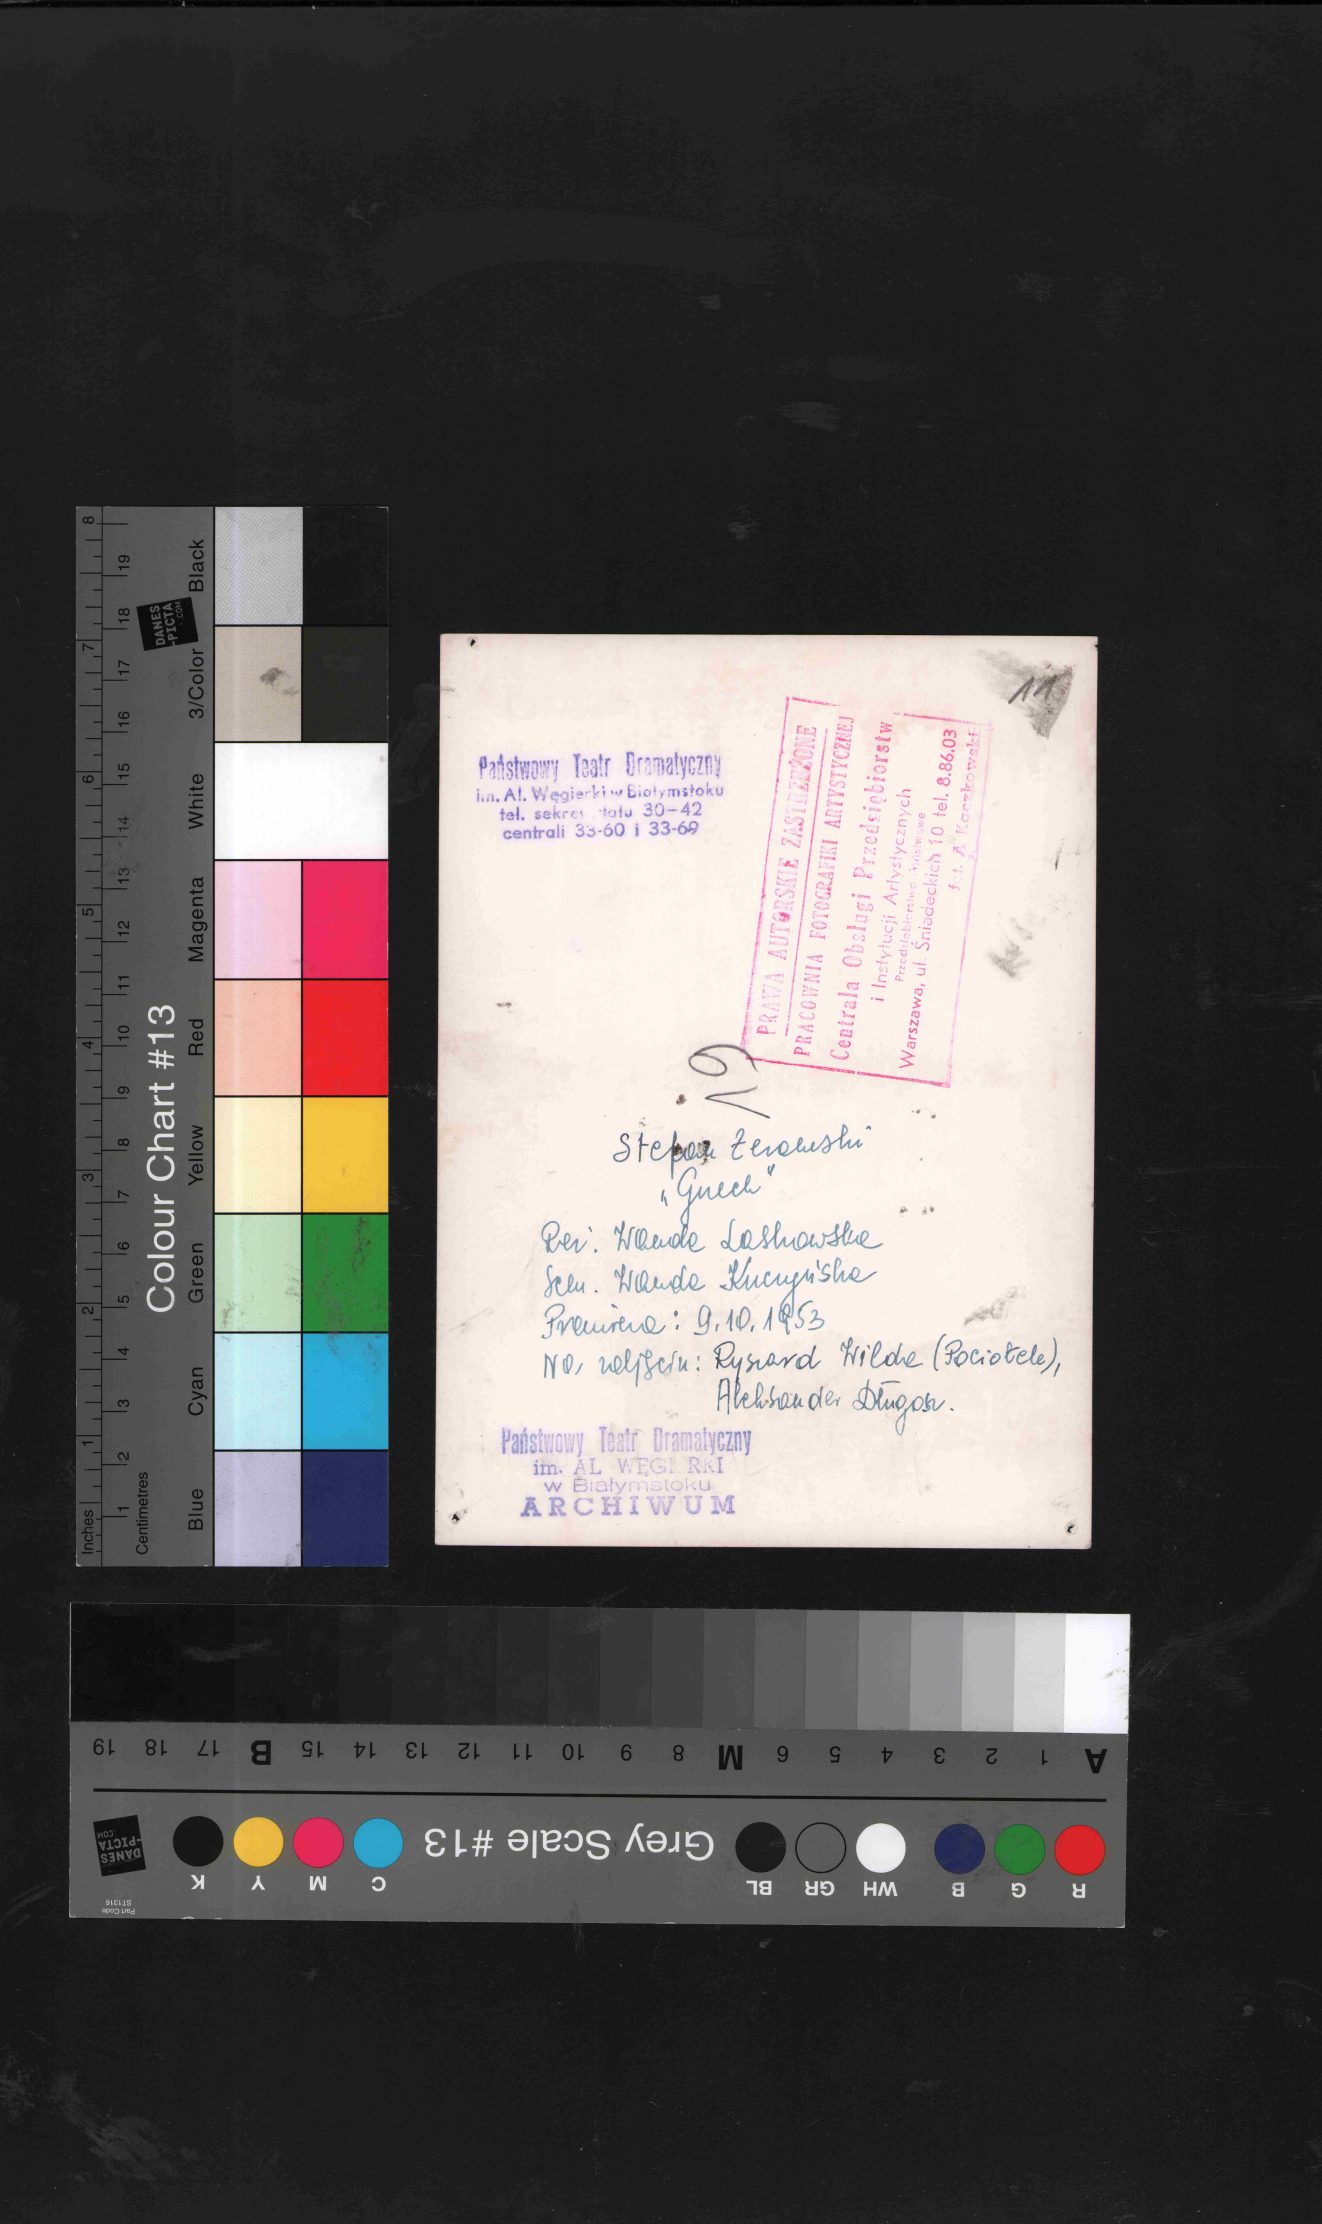 11
Państwowy Teatr Dramatyczny
im. Al. Węgierki w Białymstoku
tel. 30-42
centrali 33-60 i 33-69
PRAWA AUTORSKIE ZASTRZEŻONE
PRACOWNIA FOTOGRAFIKI ARTYSTYCZNEJ
Centrala Obsługi Przedsiębiorstw
i Instytucji Artystycznych
Przedsiębiorstwo Państwowe
Warszawa, ul. Śniadeckich 10 tel. 8.86.03
fot. A. Kaczkowski
19
Stefan Żeromski
„Grzech"
Reż. Wanda Laskowska
Scen. Wanda Kuczyńska
Premiera: 9.10.1953
Na zdjęciu: Ryszard Wilda (Pociołek),
Aleksander Długosz.
Państwowy Teatr Dramatyczny
im. AL WĘGI RKI
w Białymstoku
ARCHIWUM
Colour Chart #13
Inches 1 2 3 4 5 6 7 8
Centimetres 1 2 3 4 5 6 7 8 9 10 11 12 13 14 15 16 17 18 19
Blue Cyan Green Yellow Red Magenta White 3/Color Black
DANES
-PICTA
.COM
A 1 2 3 4 5 6 M 8 9 10 11 12 13 14 15 B 17 18 19
R G B WH GR BL
Grey Scale #13
C M Y K
DANES
-PICTA
.COM
Part Code
ST1316